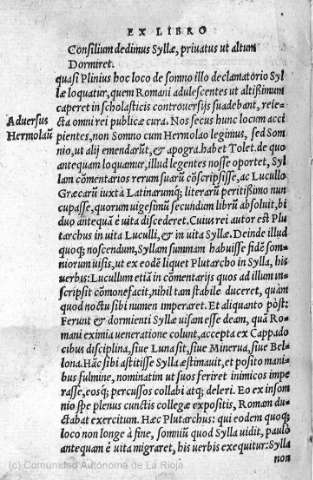 EX LIBRO
Consilium dedimus Syllæ, priuatus ut altum
Dormiret.
quasi Plinius hoc loco de somno illo declamatorio Syl
læ loquatur, quem Romani adulescentes ut altißimum
caperet in scholasticis controuersijs suadebant, relc-
cta omni rei publicæ cura. Nos secus hunc locum acci
pientes, non Somno cum Hermolao legimus, sed Som
nio, ut alij emendarūt, & apogra. habet Tolet. de quo
antequam loquamur, illud legentes nosse oportet, Syl
lam cōmentarios rerum suarū cōscripsisse, ac Lucullo
Græcarū iuxtà Latinarumq; literarū peritißimo nun
cupasse, quorum uigesimū secundum librū absoluit, bi
duo antequā è uita discederet. Cuius rei autor est Plu
tarchus in uita Luculli, & in uita Syllæ. Deinde illud
quoq; noscendum, Syllam summam habuisse fidē som-
niorum uisis, ut ex eodē liquet Plutarcho in Sylla, his
uerbis: Lucullum etiā in cōmentarijs quos ad illum in
scripsit cōmonefacit, nihil tam stabile duceret, quàm
quod noctu sibi numen imperaret. Et aliquanto pòst:
Ferunt & dormienti Syllæ uisam esse deam, quā Ro-
mani eximia ueneratione colunt, accepta ex Cappado
cibus disciplina, siue Luna sit, siue Minerua, siue Bel-
lona. Hāc sibi astitisse Sylla æstimauit, et posito mani
bus fulmine, nominatim ut suos feriret inimicos impe
rasse, eosq; percussos collabi atq; deleri. Eo ex insom
nio spe plenus cunctis collegæ expositis, Romam du-
ctabat exercitum. Hæc Plutarchus: qui eodem quoq;
loco non longè à fine, somniū quod Sylla uidit, paulò
antequam è uita migraret, his uerbis exequitur: Sylla
non
Aduersus
Hermolaū
(c) Comunidad Autónoma de La Rioja